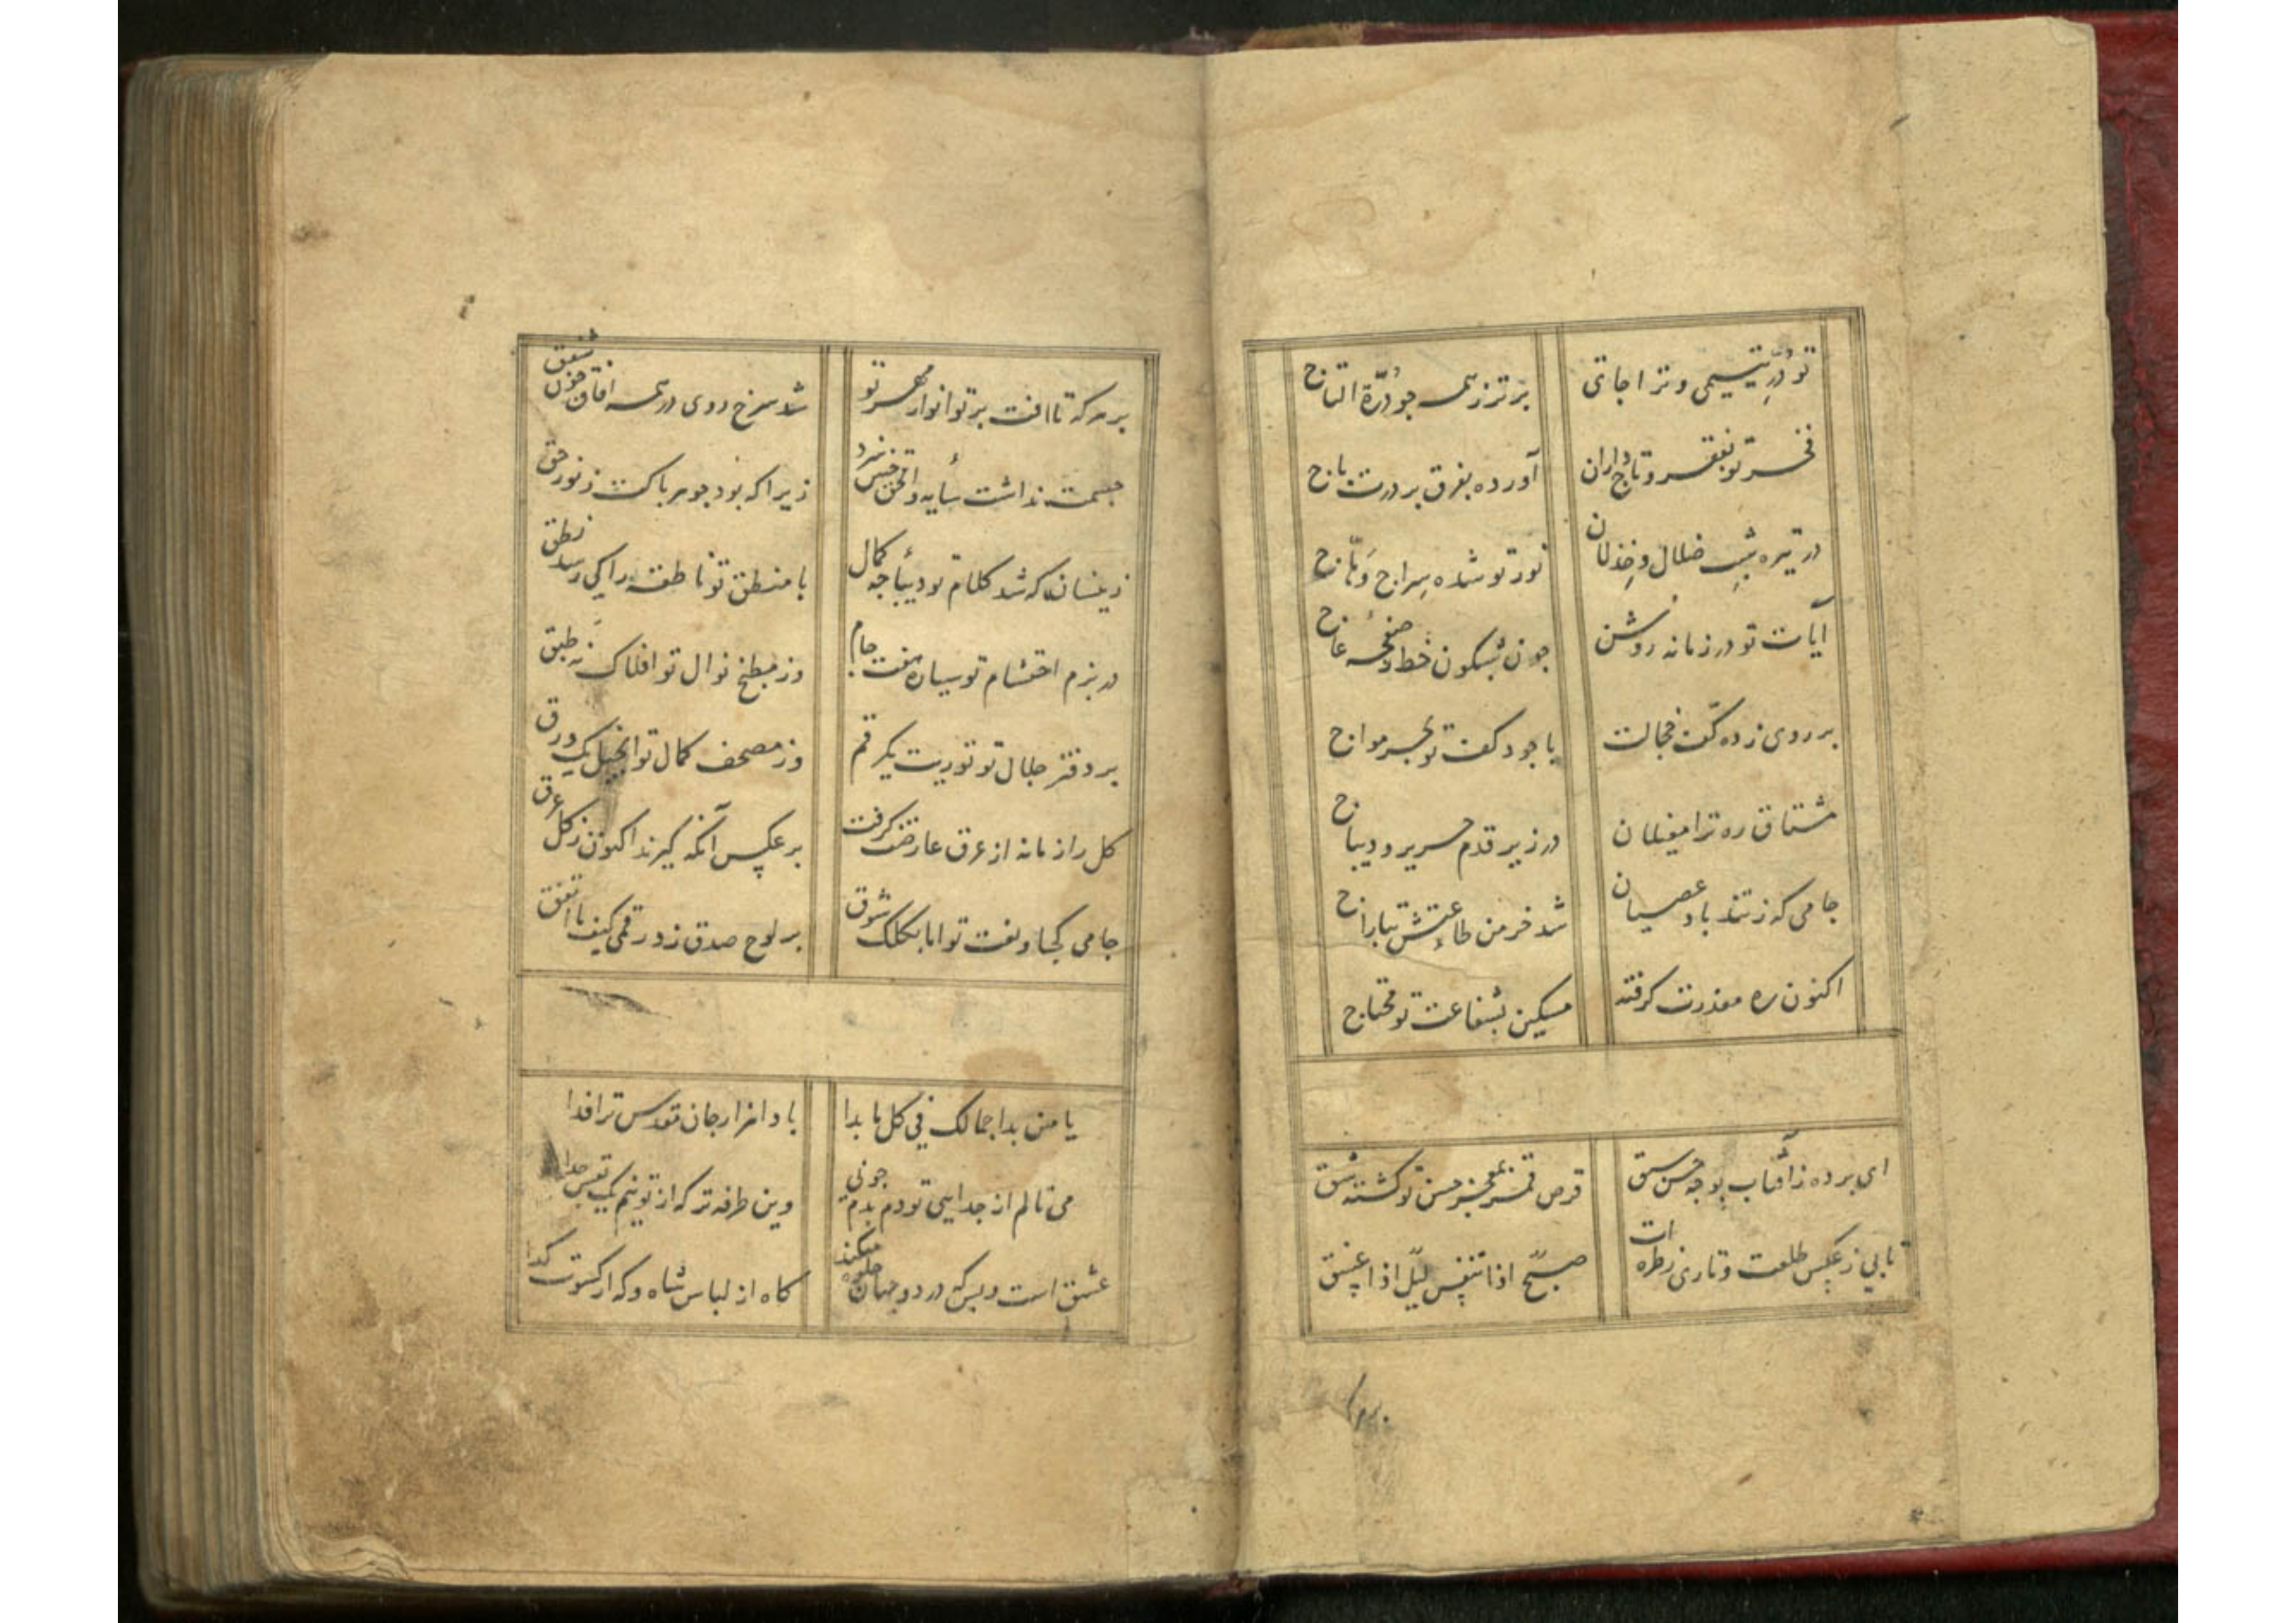 تو دُرِّ یتیمی و ترا جای برتر ز همه جو دُرّة التاج
فخر تو بفقر و تاج داران آورده بفرق بر درت باج
در تیره شبِ ضلال و خِذلان نور تو شده سِراج وَهّاج
آیات تو در زمانه روشن جون شبکون خط و صفحهٔ عاج
بر روی زده کف خجالت با جود کفت تو بحر مواج
مشتاق ره ترا مغیلان در زیر قدم حریر و دیباج
جامی که ز تند باد عصیان شد خرمن طاعتش بتاراج
اکنون ره معذرت کرفته مسکین بشفاعت تو محتاج
ای برده ز آفتاب بوجه حسن سبق قرص قمر بمعجز حسن تو کشته شق
تابی ز عکس طلعت و تاری ز طره ات صبحٌ اذا تنفس لیلٌ اذا غسق
بر هر که تافت برتو انوار مهر تو شد سرخ روی در همه آفاق جون شفق
جسمت نداشت سایه و الحق جنین سزد زیرا که بود جوهر باکت ز نور حق
زینسان که شد کلام تو دیباجه کمال با منطق تو ناطقه را کی رسد نطق
در بزم احتشام تو سیاره هفت جام وز مطبخ نوال تو افلاک نه طبق
بر دفتر جلال تو توریت یک رقم وز مصحف کمال تو انجیل یک ورق
کل را زمانه از عرق عارضت کرفت بر عکس آنکه کیرند اکنون ز کل عرق
جامی کجا و نعت تو اما بکلک شوق بر لوح صدق زد رقمی کیف ما اتفق
یا من بدا جمالک فی کل ما بدا بادا هزار جان مقدس ترا فدا
می نالم از جدایی تو دم بدم جو نی وین طرفه تر که از تو نیم یک نفس جدا
عشق است و بس که در دو جهان جلوه میکند کاه از لباس شاه و که از کسوت کدا